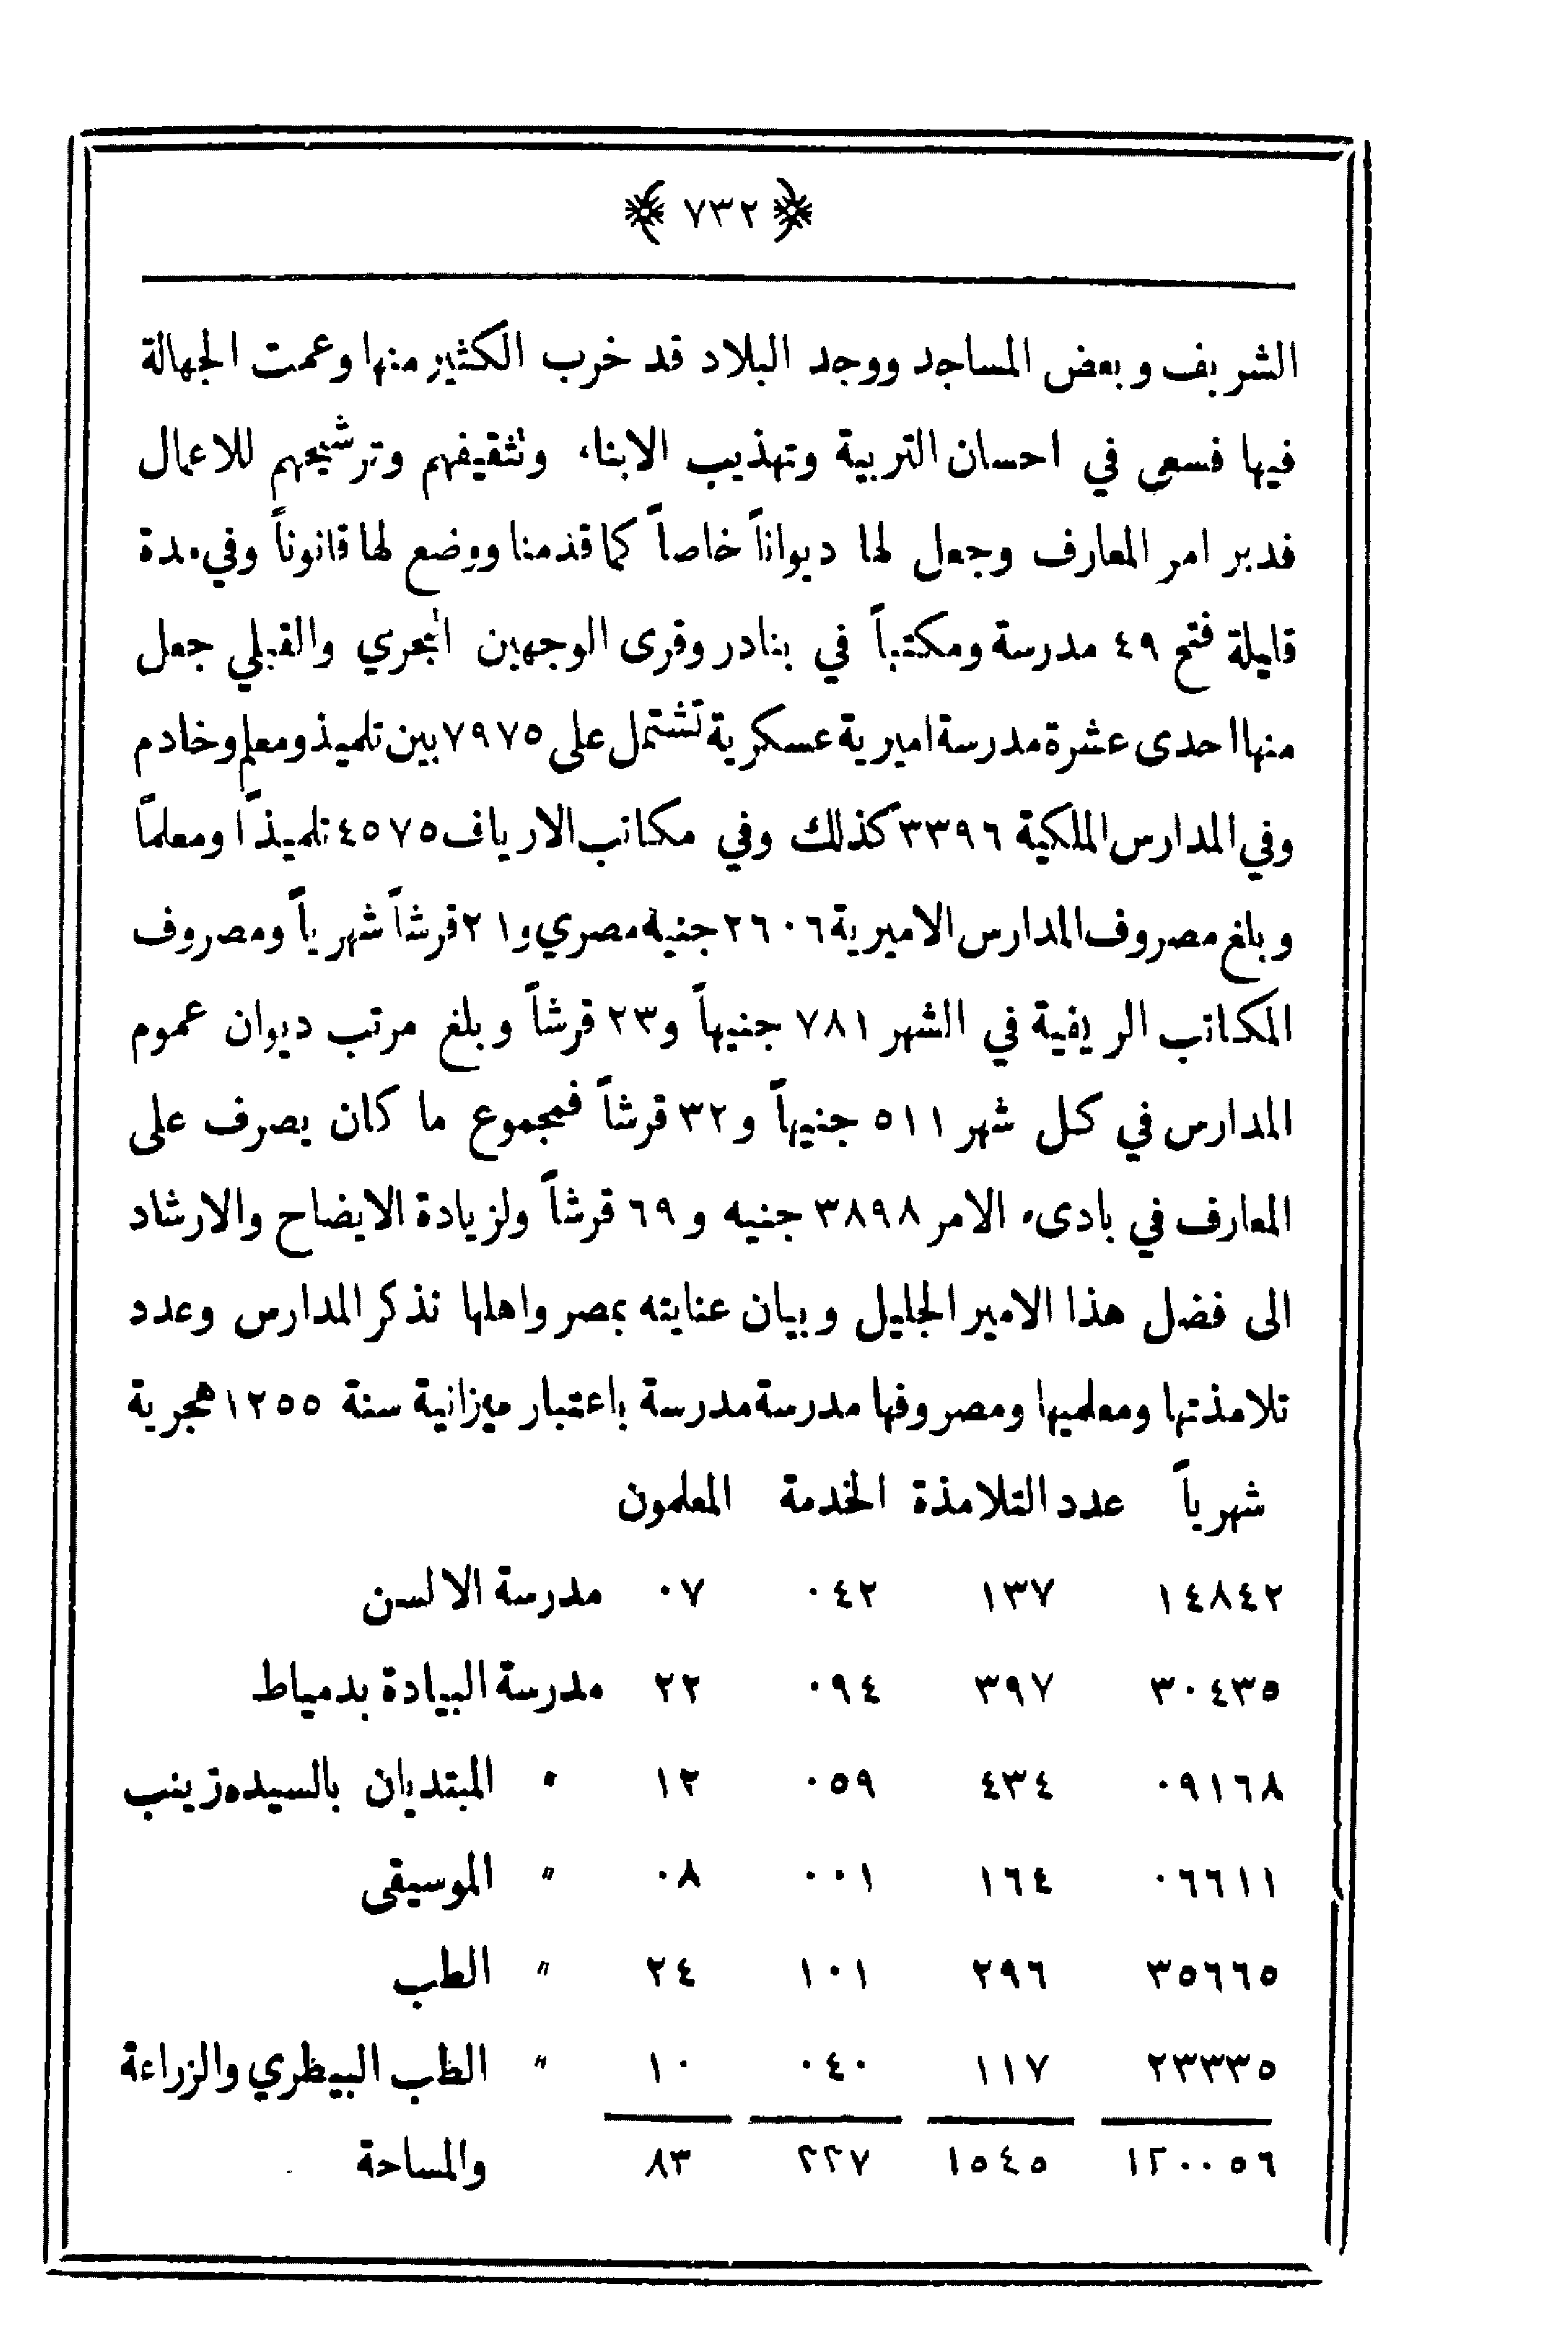 ﴿ ٧٣٢ ﴾
الشريف وبعض المساجد ووجد البلاد قد خرب الكثير منها وعمت الجهالة
فيها فسعى في احسان التربية وتهذيب الابناء وتثقيفهم وترشيحهم للاعمال
فدبر امر المعارف وجعل لها ديواناً خاصاً كما قدمنا ووضع لها قانوناً وفي مدة
قليلة فتح ٤٩ مدرسة ومكتباً في بنادر وقرى الوجهين البحري والقبلي جعل
منها احدى عشرة مدرسة اميرية عسكرية تشتمل على ٧٩٧٥ بين تلميذ ومعلم وخادم
وفي المدارس الملكية ٣٣٩٦ كذلك وفي مكاتب الارياف ٤٥٧٥ تلميذاً ومعلماً
وبلغ مصروف المدارس الاميرية ٢٦٠٦ جنيه مصري و٢١ قرشاً شهرياً ومصروف
المكاتب الريفية في الشهر ٧٨١ جنيهاً و٢٣ قرشاً وبلغ مرتب ديوان عموم
المدارس في كل شهر ٥١١ جنيهاً و٣٢ قرشاً فمجموع ما كان يصرف على
المعارف في بادىء الامر ٣٨٩٨ جنيه و ٦٩ قرشاً ولزيادة الايضاح والارشاد
الى فضل هذا الامير الجليل وبيان عنايته بمصر واهلها نذكر المدارس وعدد
تلامذتها ومعلميها ومصروفها مدرسة مدرسة باعتبار ميزانية سنة ١٢٥٥ هجرية
شهرياً عدد التلامذة الخدمة المعلمون
١٤٨٤٢ ١٣٧ ٠٤٢ ٠٧ مدرسة الالسن
٣٠٤٣٥ ٣٩٧ ٠٩٤ ٢٢ مدرسة البيادة بدمياط
٠٩١٦٨ ٤٣٤ ٠٥٩ ١٢ " المبتديان بالسيده زينب
٠٦٦١١ ١٦٤ ٠٠١ ٠٨ " الموسيقى
٣٥٦٦٥ ٢٩٦ ١٠١ ٢٤ " الطب
٢٣٣٣٥ ١١٧ ٠٤٠ ١٠ " الطب البيطري والزراعة
١٢٠٠٥٦ ١٥٤٥ ٢٢٧ ٨٣ والمساحة